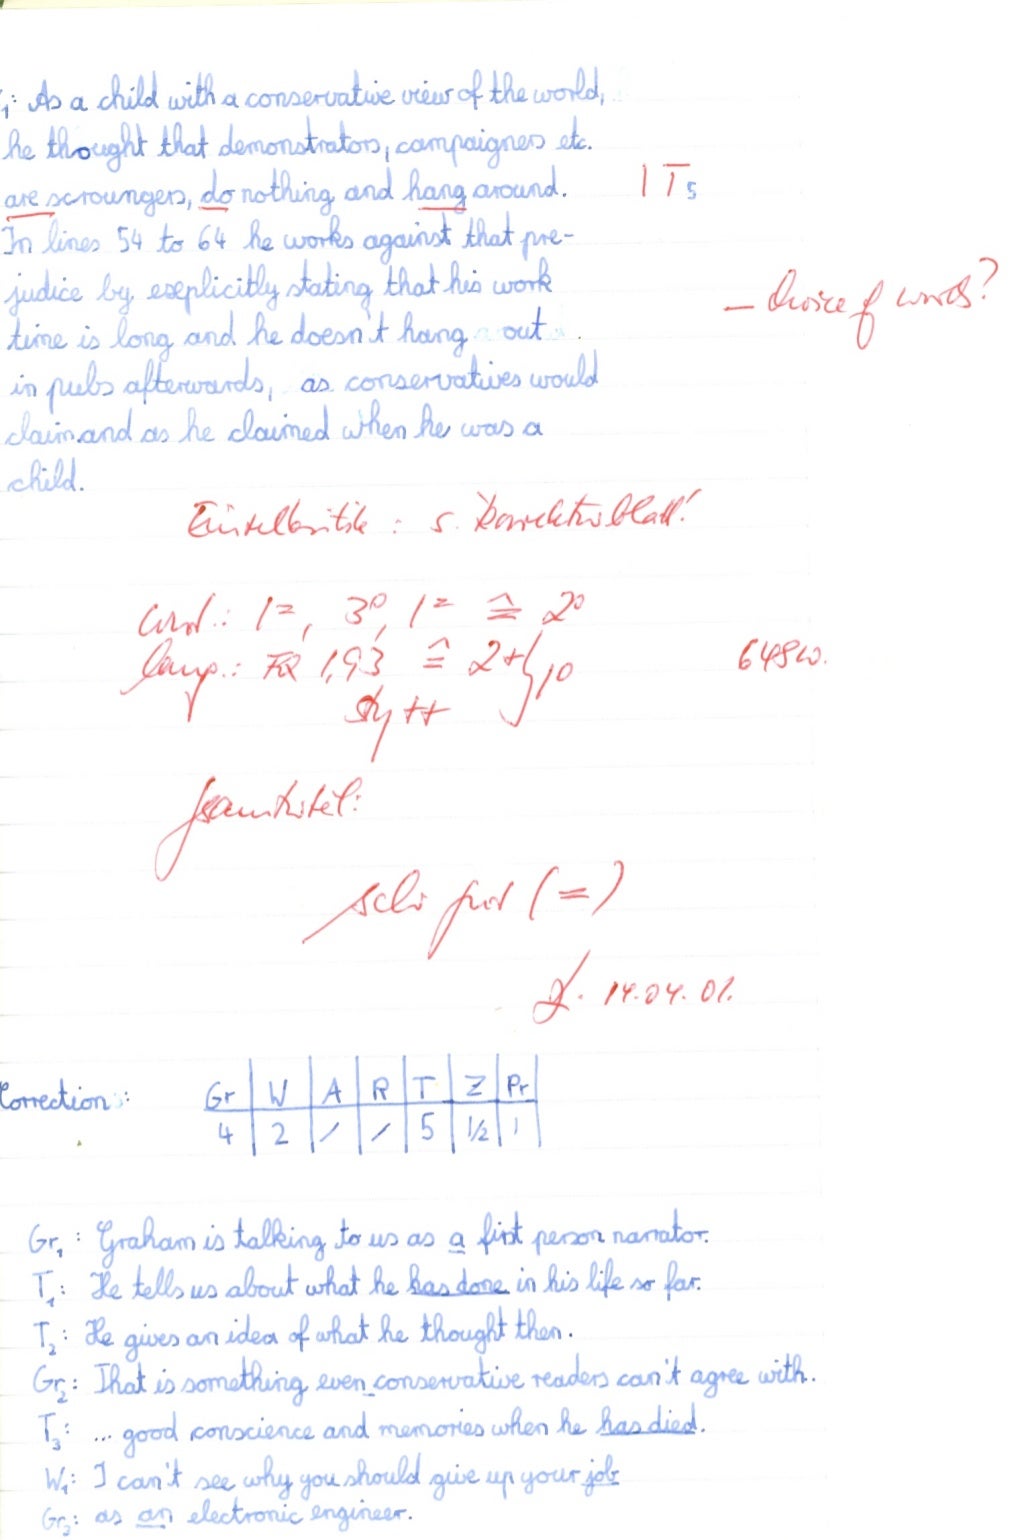 1: As a child with a conservative view of the world,
he thought that demonstrators, campaigners etc.
are scroungers, do nothing and hang around. I T5
In lines 54 to 64 he works against that pre-
judice by exeplicitly stating that his work
time is long and he doesn't hang out
in pubs afterwards, as conservatives would
claim and as he claimed when he was a
child.
– choice of words?
Einzelkritik: s. Korrekturblatt!
cont.: 1=, 3°, 1= ≙ 2°
lang.: FQ 1,93 ≙ 2+ } 10
648 W.
sty ++
Gesamturteil:
sehr gut (=)
14.04.01.
Correction:
Gr W A R T Z Pr
4 2 / / 5 1/2 1
Gr1: Graham is talking to us as a first person narrator.
T1: He tells us about what he has done in his life so far.
T2: He gives an idea of what he thought then.
Gr2: That is something even conservative readers can't agree with.
T3: ... good conscience and memories when he has died.
W1: I can't see why you should give up your job
Gr3: as an electronic engineer.